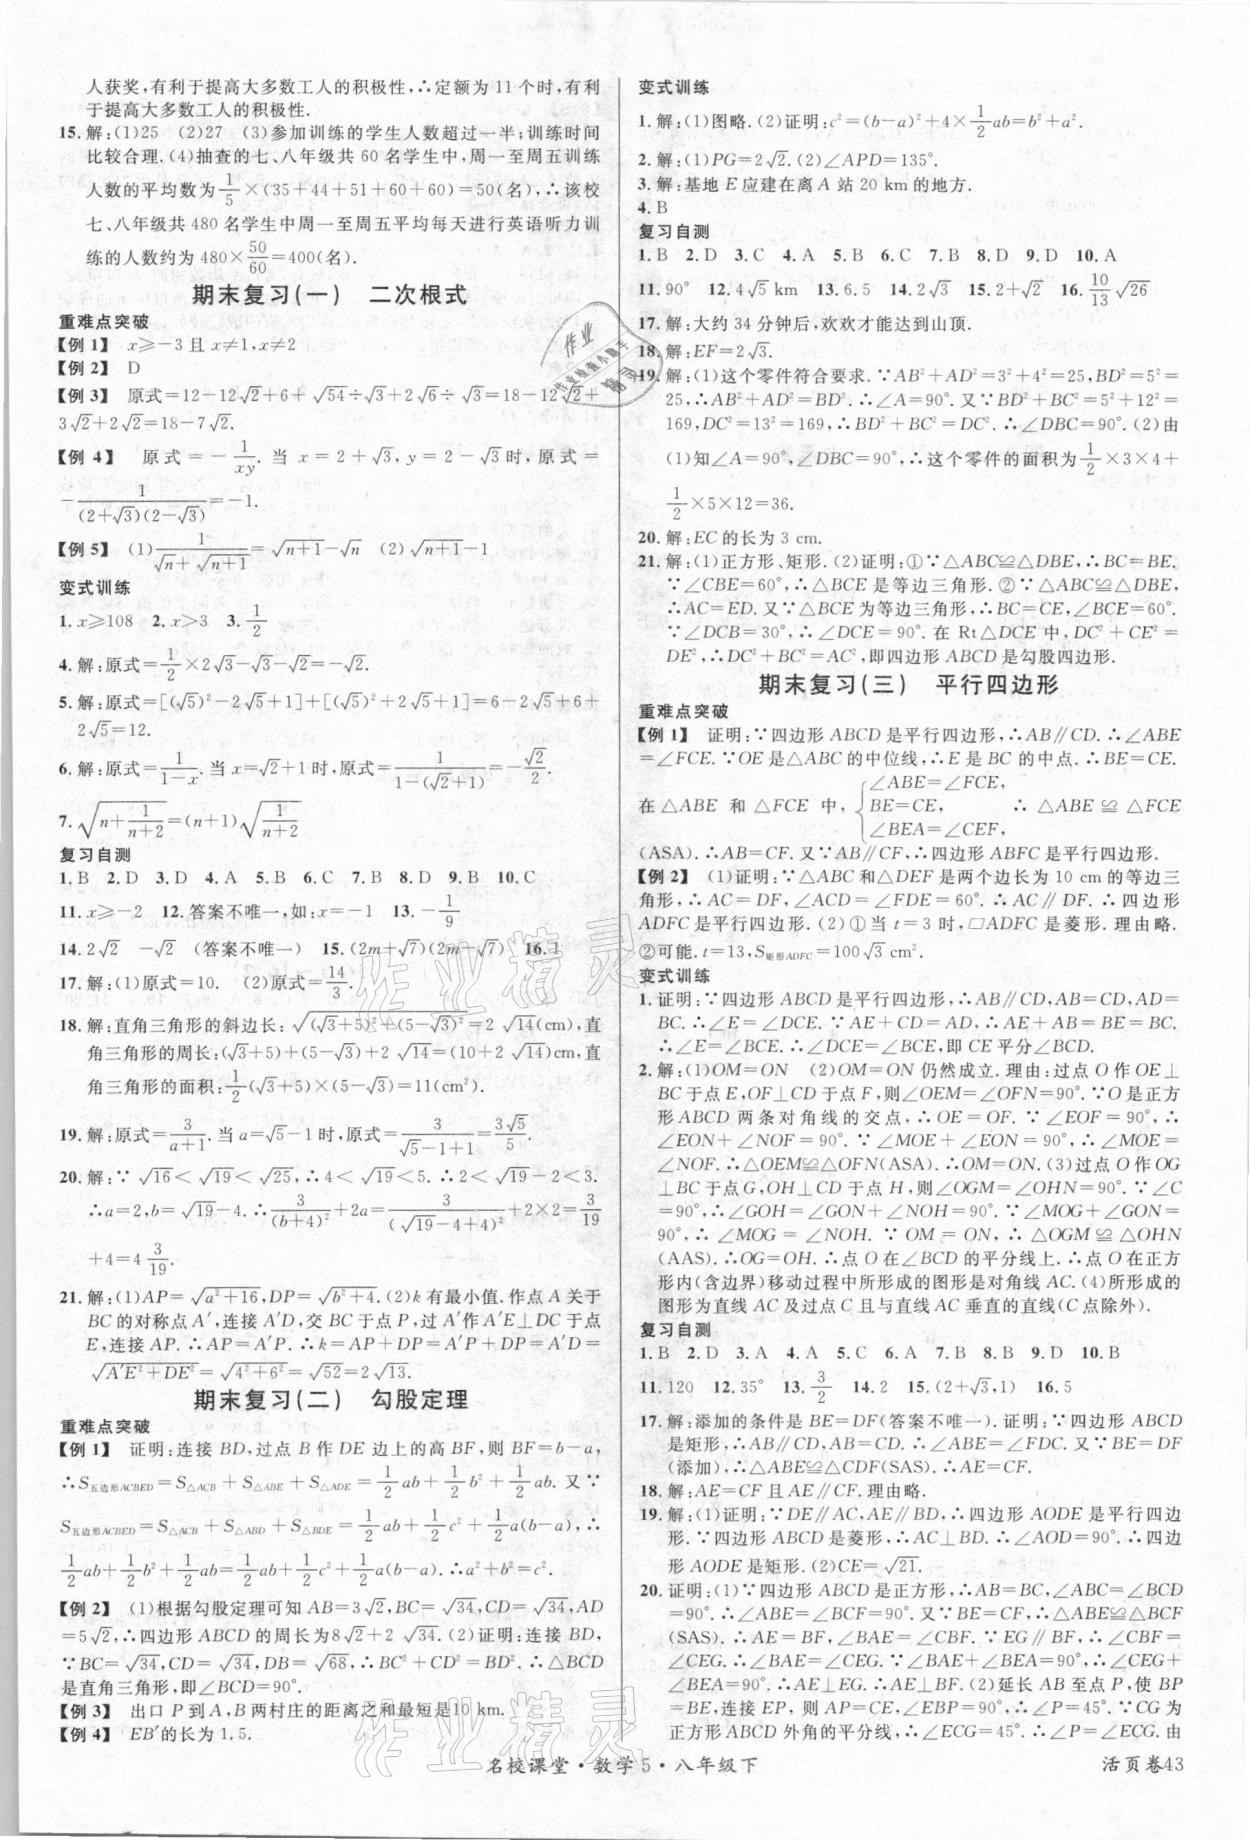 人获奖,有利于提高大多数工人的积极性,∴定额为 11 个时,有利
于提高大多数工人的积极性.
15. 解:(1)25 (2)27 (3)参加训练的学生人数超过一半;训练时间
比较合理. (4)抽查的七、八年级共 60 名学生中,周一至周五训练
人数的平均数为 1/5×(35+44+51+60+60)=50(名),∴该校
七、八年级共 480 名学生中周一至周五平均每天进行英语听力训
练的人数约为 480×50/60=400(名).
期末复习(一) 二次根式
重难点突破
【例 1】 x≥-3 且 x≠1,x≠2
【例 2】 D
【例 3】 原式=12-12√2+6+√54÷√3+2√6÷√3=18-12√2+
3√2+2√2=18-7√2.
【例 4】 原式=-1/xy. 当 x=2+√3,y=2-√3时,原式=
-1/((2+√3)(2-√3))=-1.
【例 5】 (1)1/(√n+√(n+1))=√(n+1)-√n (2)√(n+1)-1
变式训练
1. x≥108 2. x>3 3. 1/2
4. 解:原式=1/2×2√3-√3-√2=-√2.
5. 解:原式=[(√5)²-2√5+1]+[(√5)²+2√5+1]=6-2√5+6+
2√5=12.
6. 解:原式=1/(1-x). 当 x=√2+1时,原式=1/(1-(√2+1))=-√2/2.
7. √(n+1/(n+2))=(n+1)√(1/(n+2))
复习自测
1. B 2. D 3. D 4. A 5. B 6. C 7. B 8. D 9. B 10. C
11. x≥-2 12. 答案不唯一,如:x=-1 13. -1/9
14. 2√2 -√2 (答案不唯一) 15. (2m+√7)(2m-√7) 16. 1
17. 解:(1)原式=10. (2)原式=14/3.
18. 解:直角三角形的斜边长:√((√3+5)²+(5-√3)²)=2√14(cm),直
角三角形的周长:(√3+5)+(5-√3)+2√14=(10+2√14)cm,直
角三角形的面积:1/2(√3+5)×(5-√3)=11(cm²).
19. 解:原式=3/(a+1). 当 a=√5-1时,原式=3/(√5-1+1)=3√5/5.
20. 解:∵√16<√19<√25,∴4<√19<5. ∴2<√19-2<3.
∴a=2,b=√19-4. ∴3/(b+4)²+2a=3/(√19-4+4)²+2×2=3/19
+4=4 3/19.
21. 解:(1)AP=√(a²+16),DP=√(b²+4). (2)k 有最小值. 作点 A 关于
BC 的对称点 A′,连接 A′D,交 BC 于点 P,过 A′作 A′E⊥DC 于点
E,连接 AP. ∴AP=A′P. ∴k=AP+DP=A′P+DP=A′D=
√(A′E²+DE²)=√(4²+6²)=√52=2√13.
期末复习(二) 勾股定理
重难点突破
【例 1】 证明:连接 BD,过点 B 作 DE 边上的高 BF,则 BF=b-a,
∴S五边形ACBED=S△ACB+S△ABE+S△ADE=1/2ab+1/2b²+1/2ab. 又∵
S五边形ACBED=S△ACB+S△ABD+S△BDE=1/2ab+1/2c²+1/2a(b-a),∴
1/2ab+1/2b²+1/2ab=1/2ab+1/2c²+1/2a(b-a). ∴a²+b²=c².
【例 2】 (1)根据勾股定理可知 AB=3√2,BC=√34,CD=√34,AD
=5√2,∴四边形 ABCD 的周长为8√2+2√34. (2)证明:连接 BD,
∵BC=√34,CD=√34,DB=√68,∴BC²+CD²=BD². ∴△BCD
是直角三角形,即∠BCD=90°.
【例 3】 出口 P 到 A,B 两村庄的距离之和最短是10 km.
【例 4】 EB′的长为 1.5.
变式训练
1. 解:(1)图略. (2)证明:c²=(b-a)²+4×1/2ab=b²+a².
2. 解:(1)PG=2√2. (2)∠APD=135°.
3. 解:基地 E 应建在离 A 站 20 km 的地方.
4. B
复习自测
1. B 2. D 3. C 4. A 5. A 6. B 7. B 8. D 9. D 10. A
11. 90° 12. 4√5 km 13. 6.5 14. 2√3 15. 2+√2 16. 10/13√26
17. 解:大约 34 分钟后,欢欢才能达到山顶.
18. 解:EF=2√3.
19. 解:(1)这个零件符合要求. ∵AB²+AD²=3²+4²=25,BD²=5²=
25,∴AB²+AD²=BD². ∴∠A=90°. 又∵BD²+BC²=5²+12²=
169,DC²=13²=169,∴BD²+BC²=DC². ∴∠DBC=90°. (2)由
(1)知∠A=90°,∠DBC=90°,∴这个零件的面积为1/2×3×4+
1/2×5×12=36.
20. 解:EC 的长为 3 cm.
21. 解:(1)正方形、矩形. (2)证明:①∵△ABC≌△DBE,∴BC=BE.
∵∠CBE=60°,∴△BCE 是等边三角形. ②∵△ABC≌△DBE,
∴AC=ED. 又∵△BCE 为等边三角形,∴BC=CE,∠BCE=60°.
∵∠DCB=30°,∴∠DCE=90°. 在 Rt△DCE 中,DC²+CE²=
DE²,∴DC²+BC²=AC²,即四边形 ABCD 是勾股四边形.
期末复习(三) 平行四边形
重难点突破
【例 1】 证明:∵四边形 ABCD 是平行四边形,∴AB∥CD. ∴∠ABE
=∠FCE. ∵OE 是△ABC 的中位线,∴E 是 BC 的中点. ∴BE=CE.
在△ABE 和△FCE 中,{∠ABE=∠FCE, BE=CE, ∠BEA=∠CEF, ∴△ABE≌△FCE
(ASA). ∴AB=CF. 又∵AB∥CF,∴四边形 ABFC 是平行四边形.
【例 2】 (1)证明:∵△ABC和△DEF 是两个边长为 10 cm 的等边三
角形,∴AC=DF,∠ACD=∠FDE=60°. ∴AC∥DF. ∴四边形
ADFC 是平行四边形. (2)①当 t=3 时,□ADFC 是菱形. 理由略.
②可能. t=13,S矩形ADFC=100√3 cm².
变式训练
1. 证明:∵四边形 ABCD 是平行四边形,∴AB∥CD,AB=CD,AD=
BC. ∴∠E=∠DCE. ∵AE+CD=AD,∴AE+AB=BE=BC.
∴∠E=∠BCE. ∴∠DCE=∠BCE,即 CE 平分∠BCD.
2. 解:(1)OM=ON (2)OM=ON 仍然成立. 理由:过点 O 作 OE⊥
BC 于点 E,OF⊥CD 于点 F,则∠OEM=∠OFN=90°. ∵O 是正方
形 ABCD 两条对角线的交点,∴OE=OF. ∵∠EOF=90°,∴
∠EON+∠NOF=90°. ∵∠MOE+∠EON=90°,∴∠MOE=
∠NOF. ∴△OEM≌△OFN(ASA). ∴OM=ON. (3)过点 O 作 OG
⊥BC 于点 G,OH⊥CD 于点 H,则∠OGM=∠OHN=90°. ∵∠C
=90°,∴∠GOH=∠HON+∠GON=90°. ∵∠MOG+∠GON=
90°,∴∠MOG=∠NOH. ∵OM=ON,∴△OGM≌△OHN
(AAS). ∴OG=OH. ∴点 O 在∠BCD 的平分线上. ∴点 O 在正方
形内(含边界)移动过程中所形成的图形是对角线 AC. (4)所形成的
图形为直线 AC 及过点 C 且与直线 AC 垂直的直线(C 点除外).
复习自测
1. B 2. D 3. A 4. A 5. C 6. A 7. B 8. B 9. D 10. B
11. 120 12. 35° 13. 3/2 14. 2 15. (2+√3,1) 16. 5
17. 解:添加的条件是 BE=DF(答案不唯一). 证明:∵四边形 ABCD
是矩形,∴AB∥CD,AB=CD. ∴∠ABE=∠FDC. 又∵BE=DF
(添加),∴△ABE≌△CDF(SAS). ∴AE=CF.
18. 解:AE=CF 且 AE∥CF. 理由略.
19. 解:(1)证明:∵DE∥AC,AE∥BD,∴四边形 AODE 是平行四边
形. ∵四边形 ABCD 是菱形,∴AC⊥BD. ∴∠AOD=90°. ∴四边
形 AODE 是矩形. (2)CE=√21.
20. 证明:(1)∵四边形 ABCD 是正方形,∴AB=BC,∠ABC=
∠BCD=90°. ∴∠ABE=∠BCF=90°. 又∵BE=CF,∴△ABE≌△BCF
(SAS). ∴AE=BF,∠BAE=∠CBF. ∵EG∥BF,∴∠CBF=
∠CEG. ∴∠BAE=∠CEG. ∵∠BAE+∠BEA=90°,∴∠CEG+
∠BEA=90°. ∴AE⊥EG. ∴AE⊥BF. (2)延长 AB 至点 P,使 BP
=BE,连接 EP,则 AP=CE,∠EBP=90°,∴∠P=45°. ∵CG 为
正方形 ABCD 外角的平分线,∴∠ECG=45°. ∴∠P=∠ECG. 由
名校课堂·数学5·八年级下
活页卷43